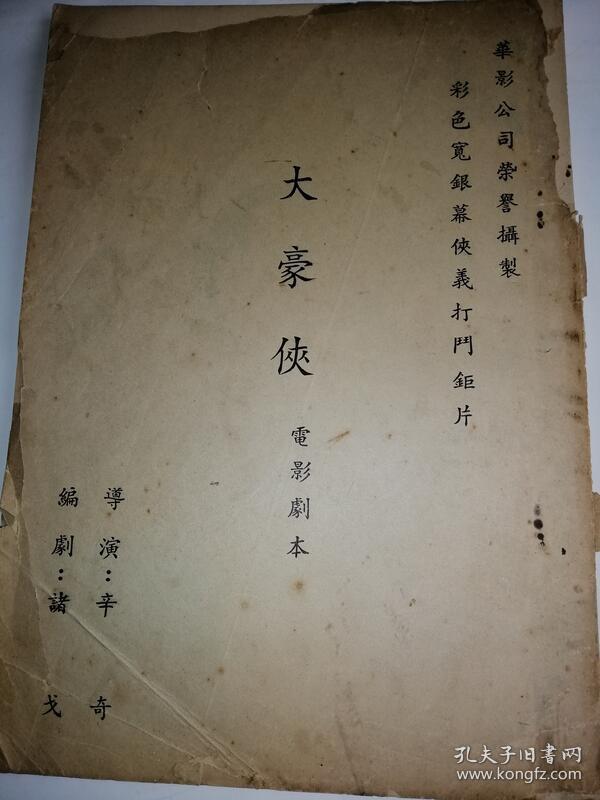 華影公司榮譽攝製
彩色寬銀幕俠義打鬥鉅片
大豪俠 電影劇本
導演：辛奇
編劇：諸戈
孔夫子旧书网
www.kongfz.com